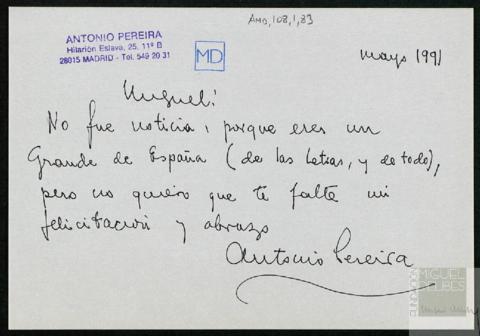 AMD, 108, 1, 83
ANTONIO PEREIRA
Hilarión Eslava, 25, 11º B
28015 MADRID - Tel. 549 20 31
MD
mayo 1991
Miguel:
No fue noticia, porque eres un
Grande de España (de las Letras, y de todo),
pero no quiero que te falte mi
felicitación y abrazo
Antonio Pereira
FUNDACIÓN
MIGUEL
DELIBES